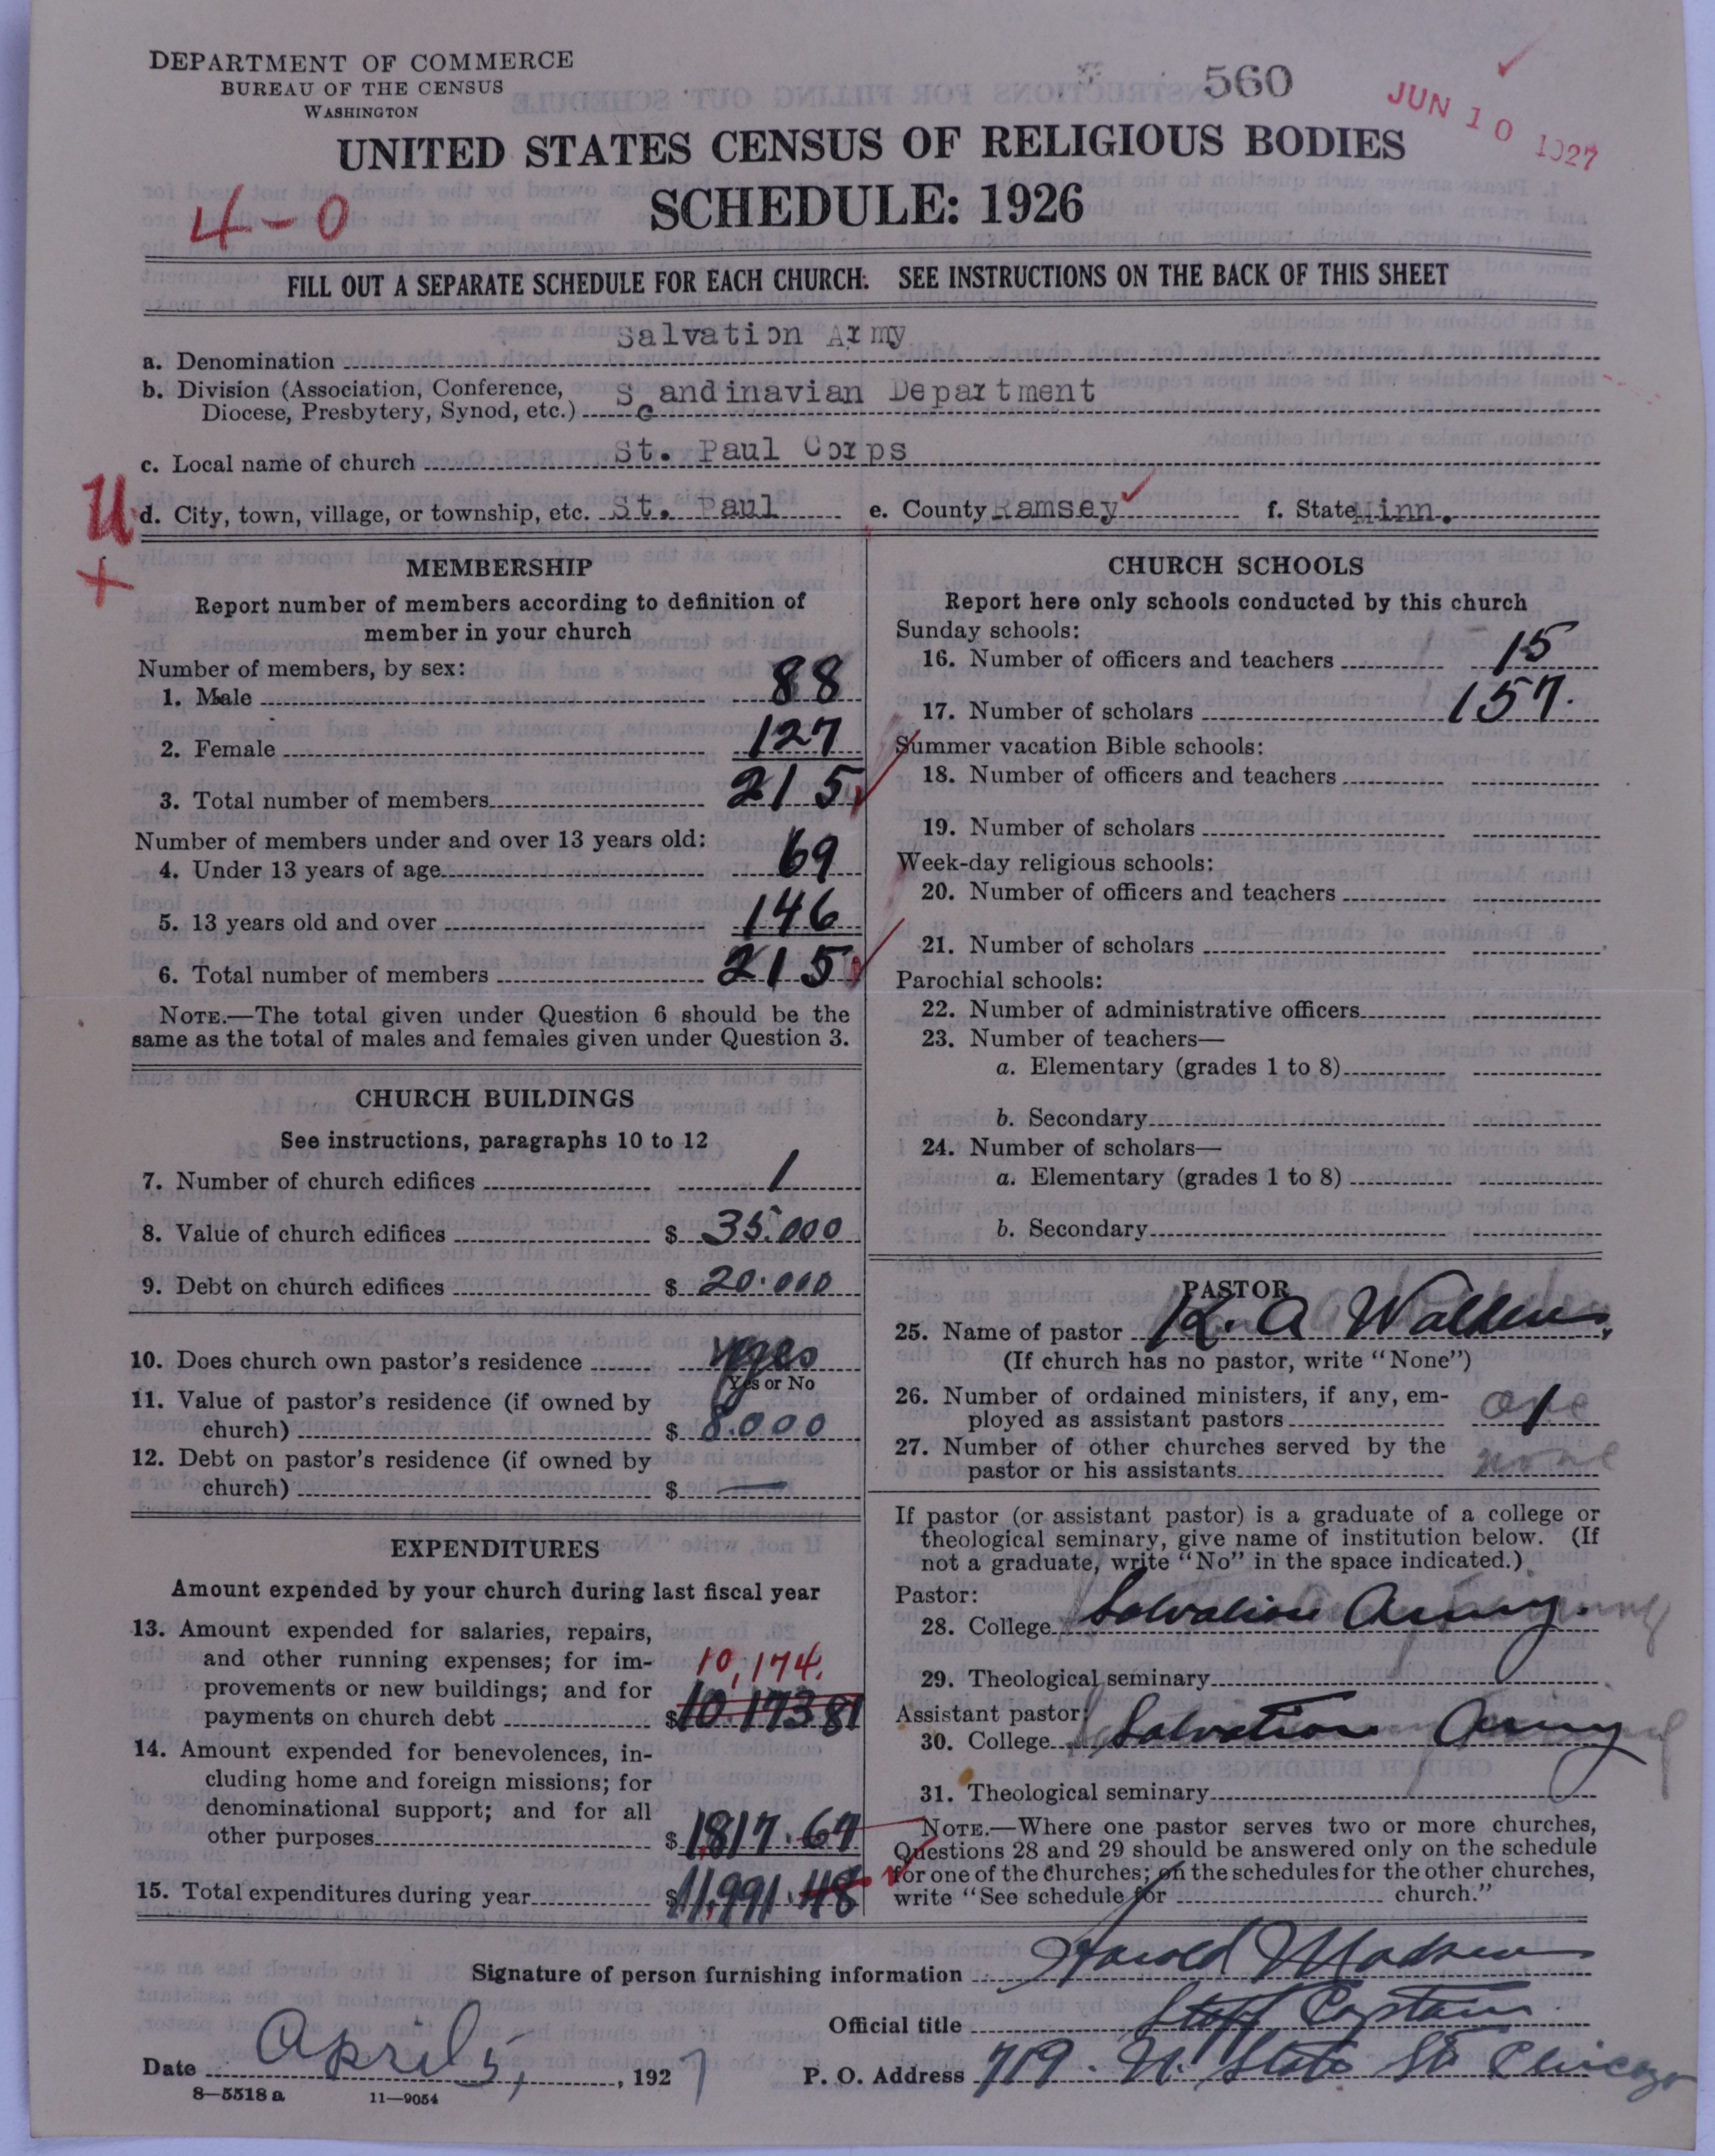 DEPARTMENT OF COMMERCE
BUREAU OF THE CENSUS
WASHINGTON
560
JUN 10 1927
UNITED STATES CENSUS OF RELIGIOUS BODIES
SCHEDULE: 1926
4-0
FILL OUT A SEPARATE SCHEDULE FOR EACH CHURCH. SEE INSTRUCTIONS ON THE BACK OF THIS SHEET
a. Denomination Salvation Army
b. Division (Association, Conference,
Diocese, Presbytery, Synod, etc.) Scandinavian Department
c. Local name of church St. Paul Corps
U
d. City, town, village, or township, etc. St. Paul e. County Ramsey f. State Minn.
+
MEMBERSHIP
Report number of members according to definition of
member in your church
Number of members, by sex:
1. Male 88
2. Female 127
3. Total number of members 215
Number of members under and over 13 years old:
4. Under 13 years of age 69
5. 13 years old and over 146
6. Total number of members 215
NOTE.—The total given under Question 6 should be the
same as the total of males and females given under Question 3.
CHURCH BUILDINGS
See instructions, paragraphs 10 to 12
7. Number of church edifices 1
8. Value of church edifices $ 35.000
9. Debt on church edifices $ 20.000
10. Does church own pastor's residence yes
Yes or No
11. Value of pastor's residence (if owned by
church) $ 8.000
12. Debt on pastor's residence (if owned by
church) $ —
EXPENDITURES
Amount expended by your church during last fiscal year
13. Amount expended for salaries, repairs,
and other running expenses; for im-
provements or new buildings; and for
10,174.
payments on church debt $ 10.173 81
14. Amount expended for benevolences, in-
cluding home and foreign missions; for
denominational support; and for all
other purposes $ 1,817.67
15. Total expenditures during year $ 11,991.48
CHURCH SCHOOLS
Report here only schools conducted by this church
Sunday schools:
16. Number of officers and teachers 15
17. Number of scholars 157.
Summer vacation Bible schools:
18. Number of officers and teachers
19. Number of scholars
Week-day religious schools:
20. Number of officers and teachers
21. Number of scholars
Parochial schools:
22. Number of administrative officers
23. Number of teachers—
a. Elementary (grades 1 to 8)
b. Secondary
24. Number of scholars—
a. Elementary (grades 1 to 8)
b. Secondary
PASTOR
25. Name of pastor K. A Walden
(If church has no pastor, write "None")
26. Number of ordained ministers, if any, em-
ployed as assistant pastors one
27. Number of other churches served by the
pastor or his assistants none
If pastor (or assistant pastor) is a graduate of a college or
theological seminary, give name of institution below. (If
not a graduate, write "No" in the space indicated.)
Pastor:
28. College Salvation Army.
29. Theological seminary
Assistant pastor:
30. College Salvation Army
31. Theological seminary
NOTE.—Where one pastor serves two or more churches,
Questions 28 and 29 should be answered only on the schedule
for one of the churches; on the schedules for the other churches,
write "See schedule for church."
Signature of person furnishing information Harold Madsen
Official title Staff Captain
Date April 5, 1927 P. O. Address 719. N. State St. Chicago
8—5518 a 11—9054